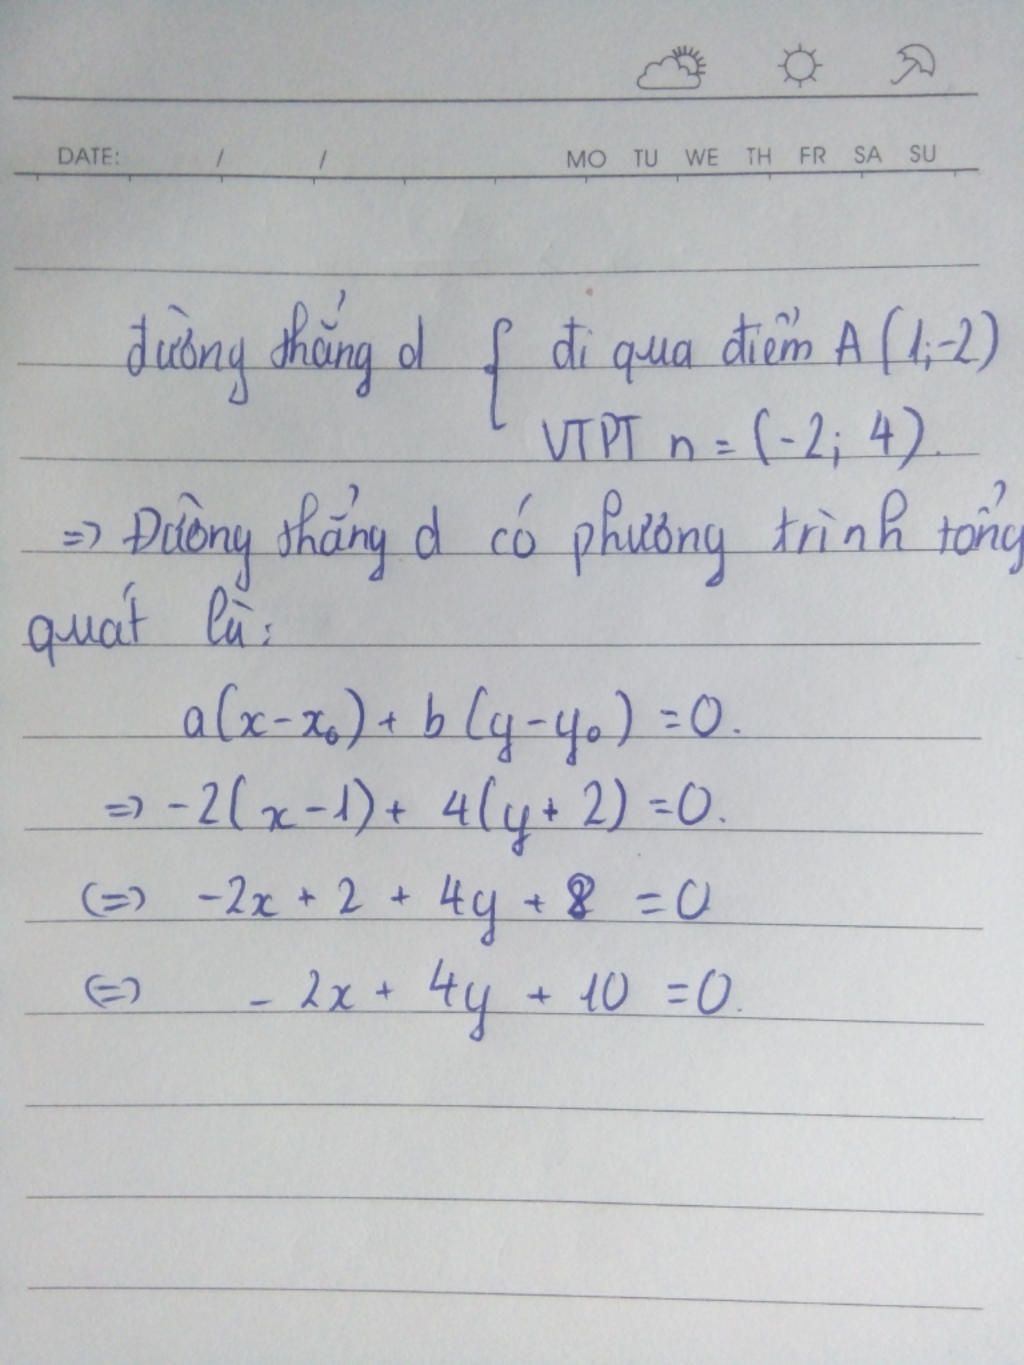 DATE: / / MO TU WE TH FR SA SU
đường thẳng d { đi qua điểm A (1;-2)
VTPT n = (-2; 4).
=> Đường thẳng d có phương trình tổng
quát là:
a(x-x₀) + b(y-y₀) = 0.
=> -2(x-1) + 4(y+2) = 0.
(=) -2x + 2 + 4y + 8 = 0
(=) - 2x + 4y + 10 = 0.